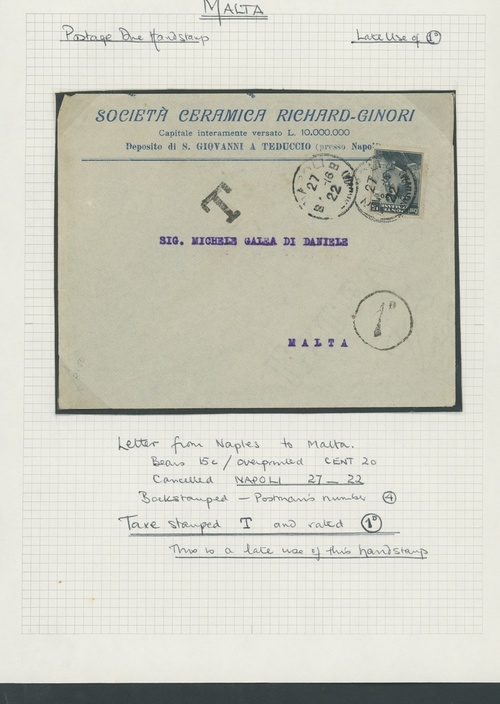 MALTA
Postage Due Handstamp
Late Use of 1D
SOCIETÀ CERAMICA RICHARD-GINORI
Capitale interamente versato L. 10.000.000
Deposito di S. GIOVANNI A TEDUCCIO (presso Napoli
T
27
22
27
22
SIG. MICHELE GALEA DI DANIELE
1D
MALTA
Letter from Naples to Malta.
Bears 15c / overprinted CENT 20
Cancelled NAPOLI 27 — 22
Backstamped — Postman's number 4
Taxe stamped T and rated 1D
This is a late use of this handstamp